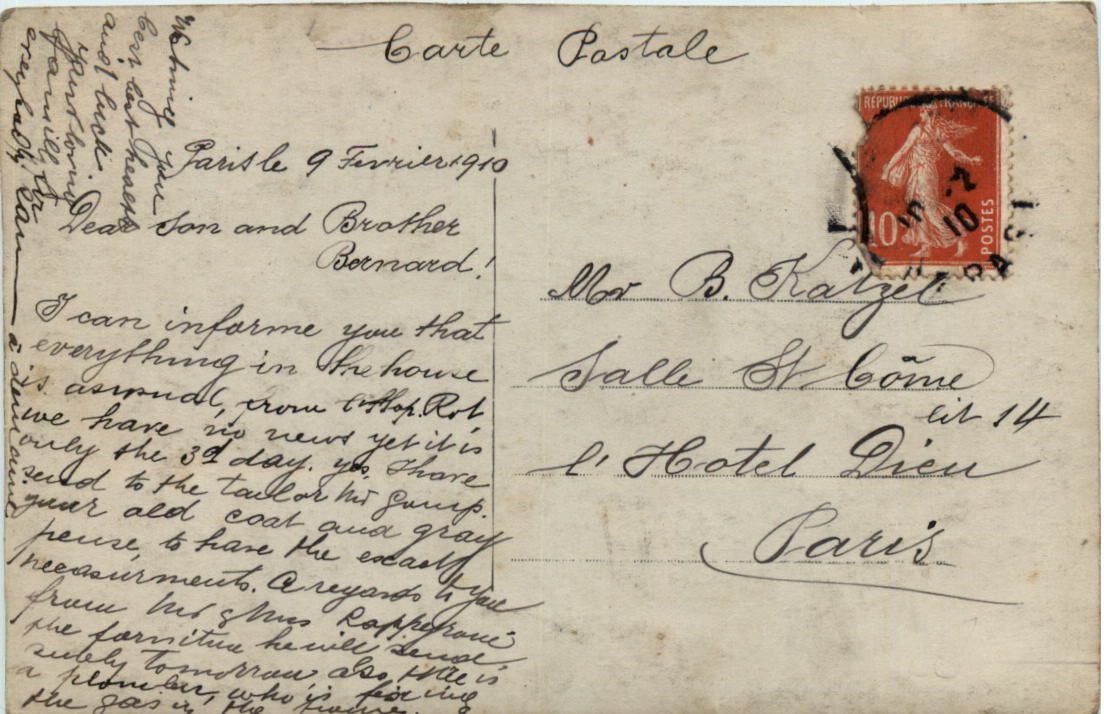 Carte Postale
REPUBLIQUE FRANCAISE
10
POSTES
Paris le 9 Fevrier 1910
Dear Son and Brother
Bernard!
I can informe you that
everything in the house
is as usual, from Rot
we have no news yet it is
only the 3d day. yes, I have
send to the taylor Mr Gomp.
your old coat and gray
to have the exactly
measurments. A regards to you
from Mr & Mrs
the forniture he will send
surely tomorrow also, there is
a plomber, who is fixing
the gas in the
Wishing you
best
and luck
Your loving
familly
à demain
Mr B. Katzel
Salle St Côme
lit 14
l'Hotel Dieu
Paris